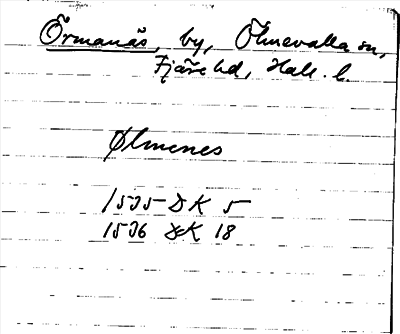 Örmanäs, by, Ölmevalla sn,
Fjäre hd, Hall. l.
Ølmenes
1535 DK 5
1536 DK 18